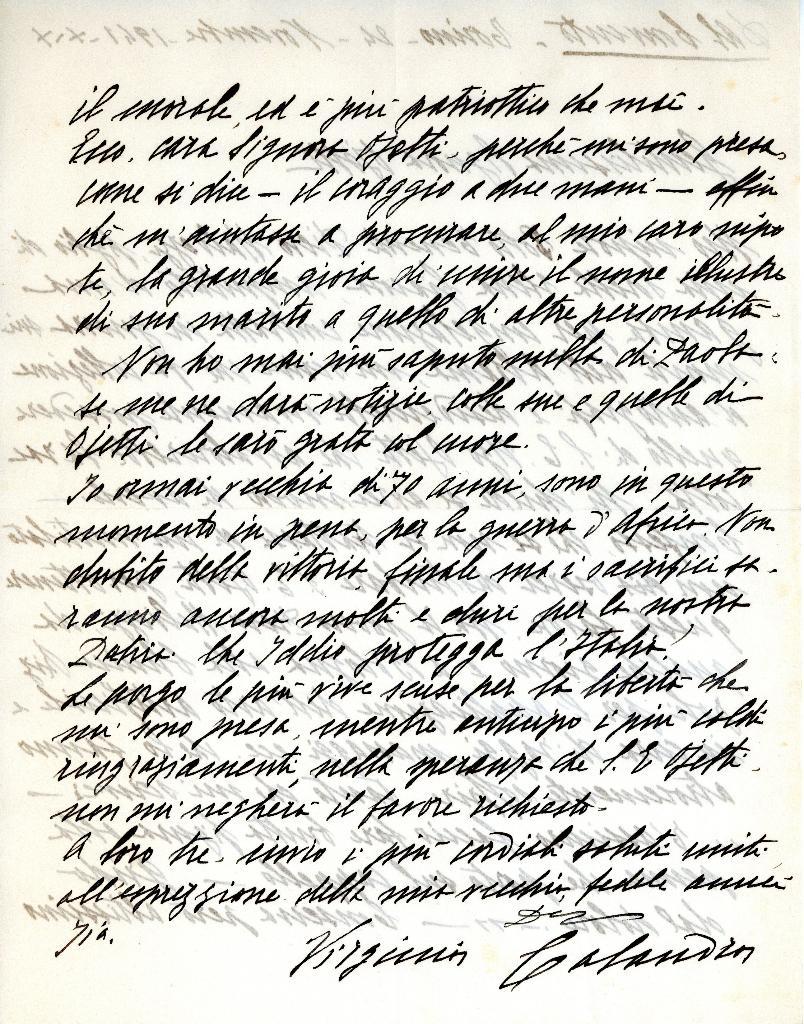 il morale, ed è più patriottico che mai.
Ecco, cara Signora Ojetti, perchè mi sono presa,
come si dice – il coraggio a due mani – affin
chè m'aiutasse a procurare, al mio caro nipo
te, la grande gioia di unire il nome illustre
di suo marito a quello di altre personalità.
Non ho mai più saputo nulla di Paola.
se me ne darà notizie, colle sue e quelle di
Ojetti le sarò grata col cuore.
Io ormai vecchia di 70 anni, sono in questo
momento in pena, per la guerra d'Africa. Non
dubito della vittoria finale ma i sacrifici sa-
ranno ancora molti e duri per la nostra
Patria. Che Iddio protegga l'Italia!
Le porgo le più vive scuse per la libertà che
mi sono presa, mentre anticipo i più caldi
ringraziamenti, nella speranza che S. E Ojetti.
non mi negherà il favore richiesto.
A loro tre. invio i più cordiali saluti uniti
all'esprezzione della mia vecchia, fedele amici
zia.
Virginia Calandra